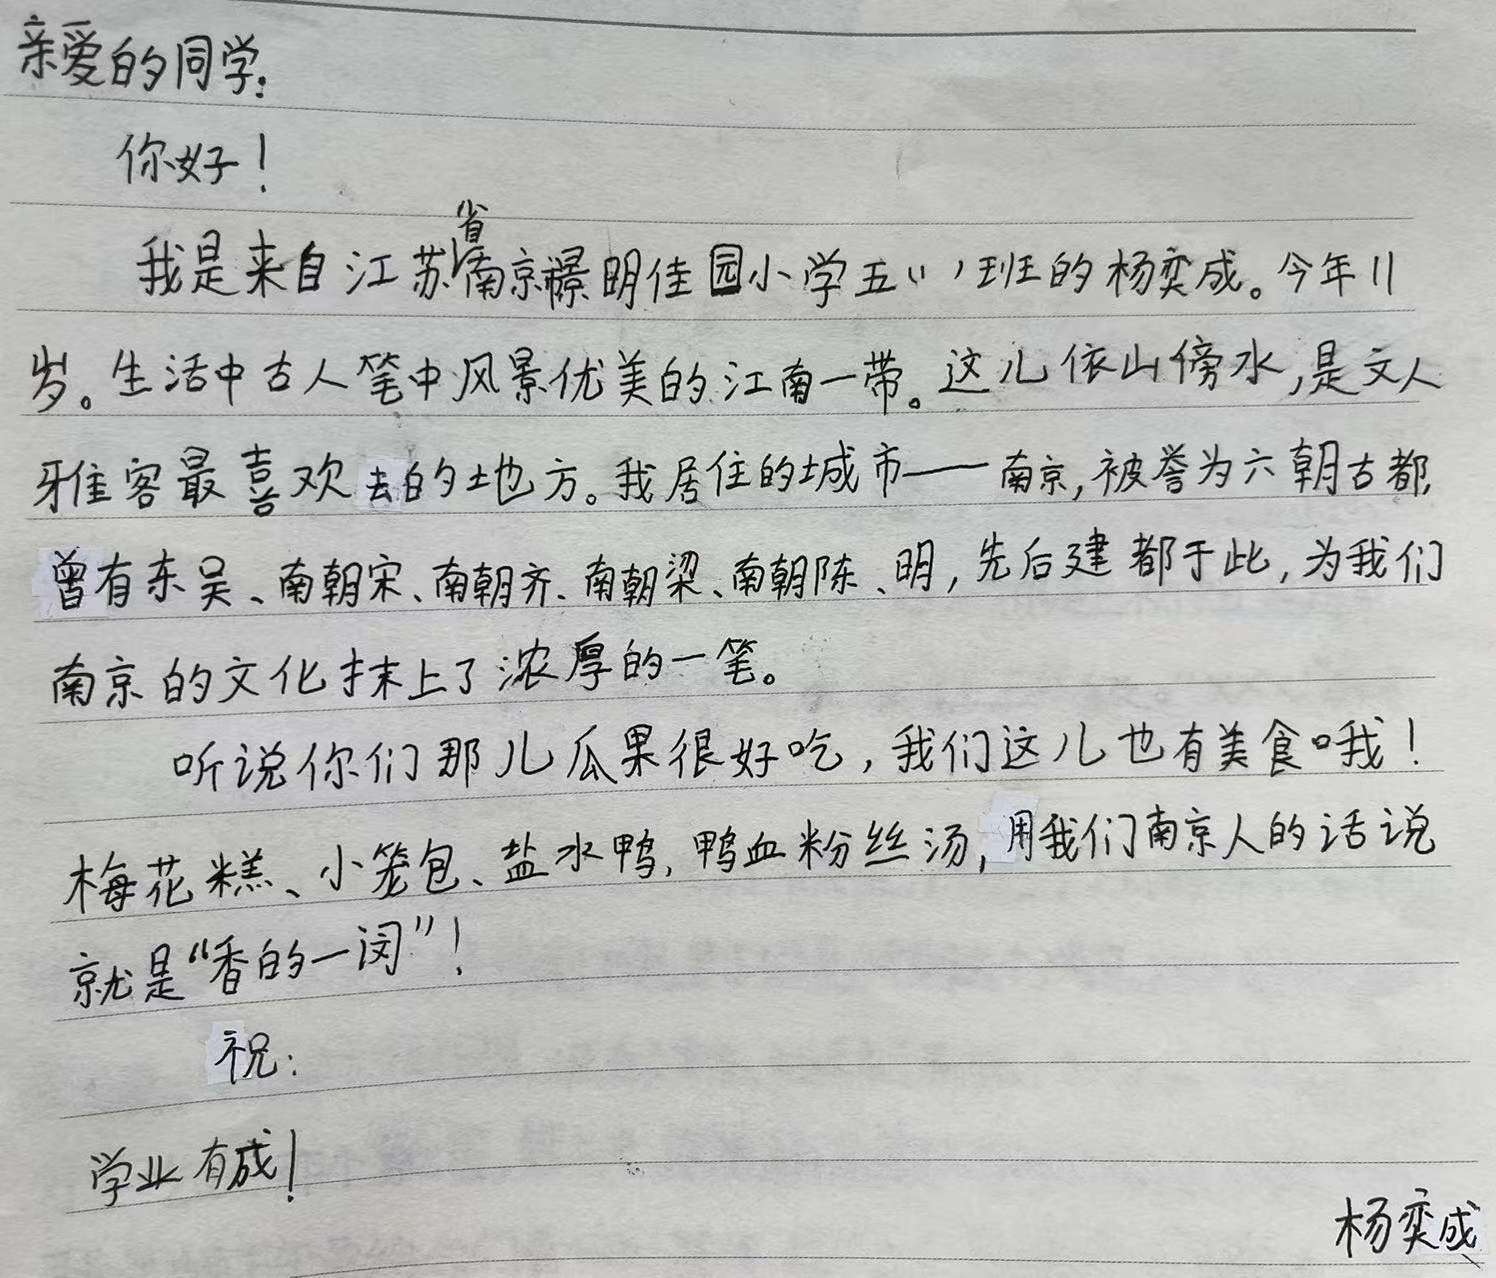 亲爱的同学:
你好!
我是来自江苏省南京市景明佳园小学五(1)班的杨奕成。今年11
岁。生活中古人笔中风景优美的江南一带。这儿依山傍水,是文人
雅客最喜欢去的地方。我居住的城市——南京,被誉为六朝古都,
曾有东吴、南朝宋、南朝齐、南朝梁、南朝陈、明,先后建都于此,为我们
南京的文化抹上了浓厚的一笔。
听说你们那儿瓜果很好吃,我们这儿也有美食哦!
梅花糕、小笼包、盐水鸭,鸭血粉丝汤,用我们南京人的话说
就是“香的一闵”!
祝:
学业有成!
杨奕成